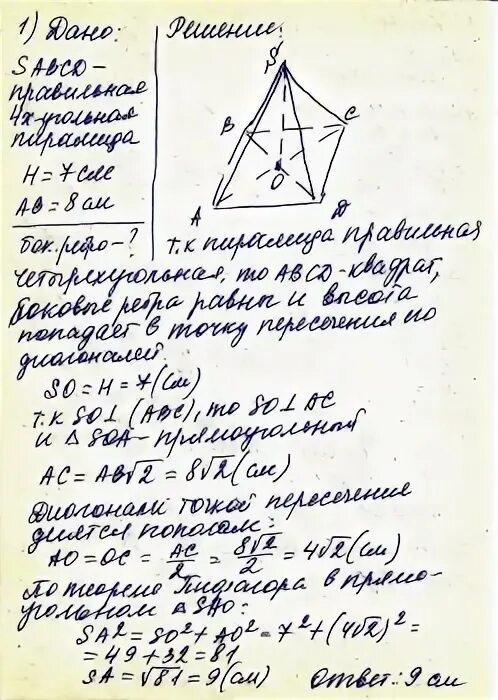 1) Дано: Решение:
SABCD-
правильная
4х-угольная
пирамида
H = 7 см
AB = 8 см
бок. ребро-?
S
B C
O
A D
т.к пирамида правильная
четырехугольная, то ABCD-квадрат,
боковые ребра равны и высота
попадает в точку пересечения
диагоналей.
SO = H = 7 (см)
т.к SO⊥(ABC), то SO⊥AC
и △SOA-прямоугольный
AC = AB√2 = 8√2 (см)
Диагонали точкой пересечение
делятся пополам:
AO = OC = AC/2 = 8√2/2 = 4√2 (см)
По теореме Пифагора в прямо-
угольном △SAO:
SA² = SO² + AO² = 7² + (4√2)² =
= 49 + 32 = 81
SA = √81 = 9 (см) Ответ: 9 см